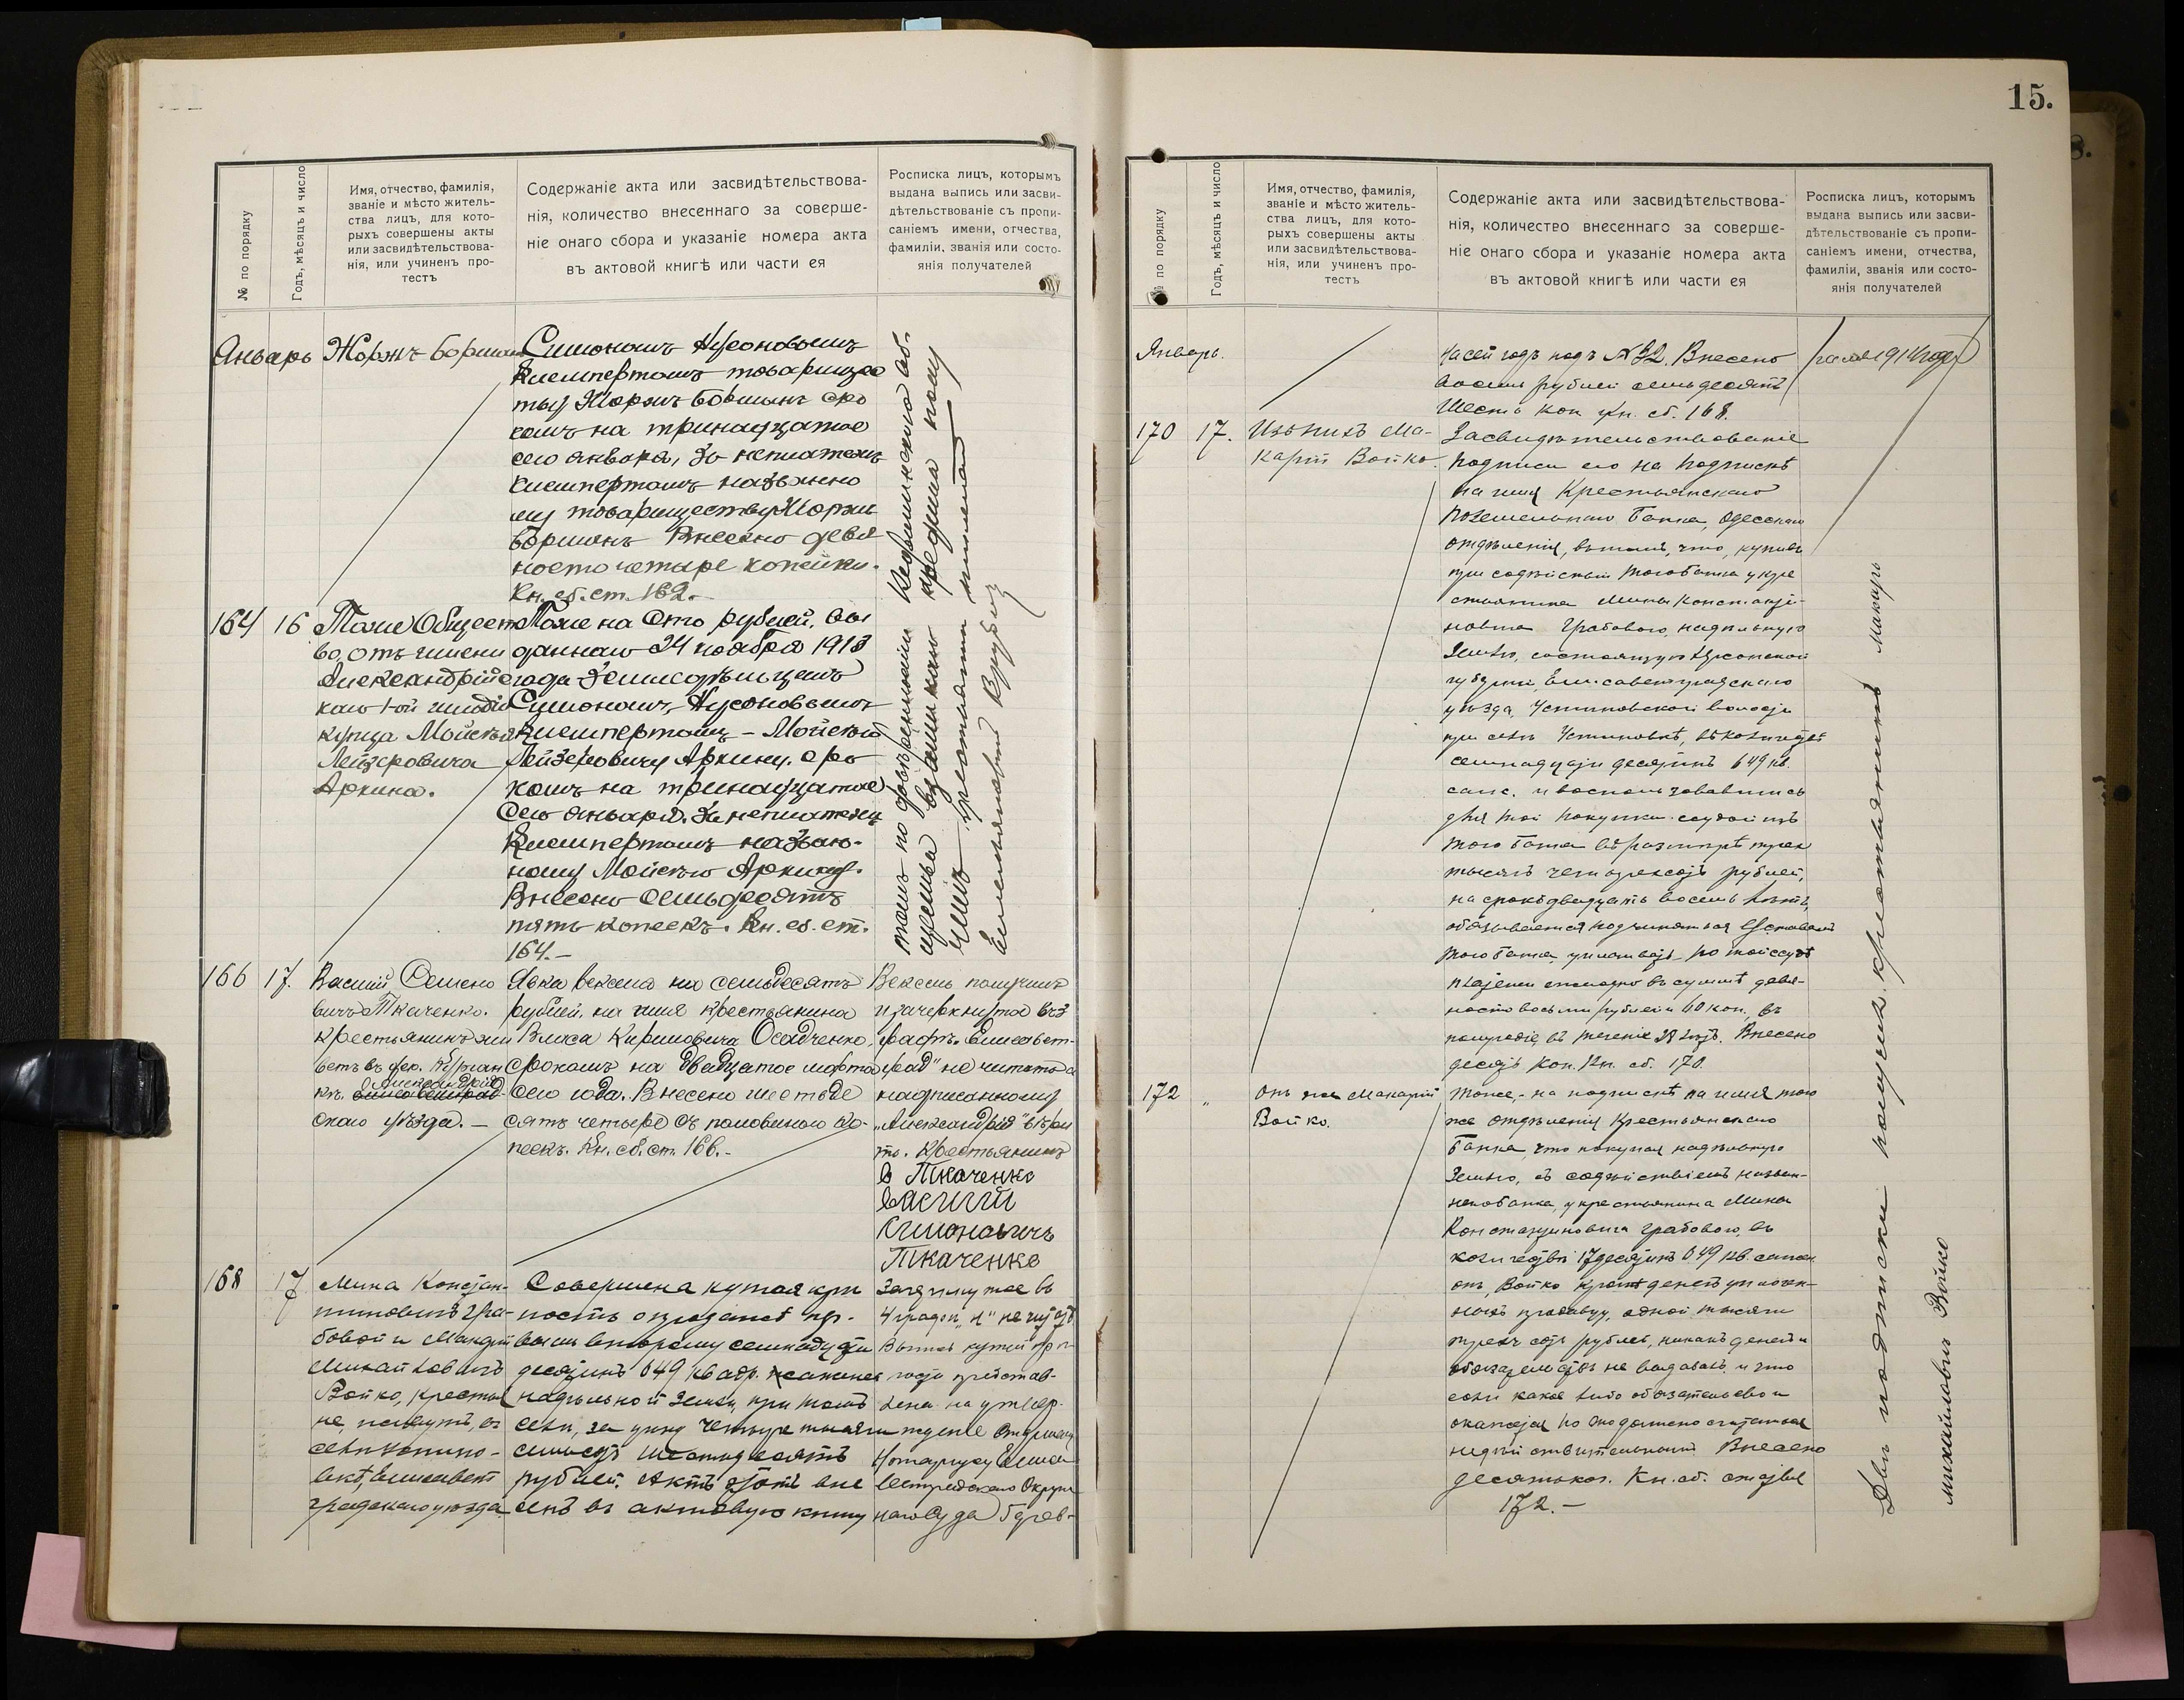 № по порядку
Годъ, мѣсяцъ и число
Имя, отчество, фамилія,
званіе и мѣсто житель-
ства лицъ, для кото-
рыхъ совершены акты
или засвидѣтельствова-
нія, или учиненъ про-
тестъ
Содержаніе акта или засвидѣтельствова-
нія, количество внесеннаго за соверше-
ніе онаго сбора и указаніе номера акта
въ актовой книгѣ или части ея
Росписка лицъ, которымъ
выдана выпись или засви-
дѣтельствованіе съ пропи-
саніемъ имени, отчества,
фамиліи, званія или состо-
янія получателей
Январь
Жоржъ Борманъ
Симономъ Нусоновымъ
Клемпертомъ товарищес
тву Жоржъ Борманъ сро
комъ на тринадцатое
сего января, за неплатежъ
Клемпертомъ названно
му товариществу Жоржъ
Борманъ Внесено девя
носто четыре копейки.
Кн. сб. ст. 162.
164
16
Тоже Общест
во, отъ имени
Александрійс
каго 1-ой гильдіи
купца Мойсея
Лейзеровича
Аркина.
Тоже на сто рублей, вы
даннаго 24 ноября 1913
года Земледѣльцемъ
Симономъ Нусоновымъ
Клемпертомъ – Мойсею
Лейзеровичу Аркину, сро
комъ на тринадцатое
сего января. За неплатежъ
Клемпертомъ назван-
ному Мойсею Аркину.
Внесено семьдесятъ
пять копеекъ. Кн. сб. ст.
164.–
по довѣренности
щества взаимнаго кредита
166
17.
Василій Семено
вичъ Ткаченко.
Крестьянинъ жи
ветъ въ дер.
къ Александрій
скаго уѣзда. –
Явка векселя на семьдесятъ
рублей, на имя крестьянина
Власа Кириловича Осадченко,
срокомъ на двадцатое марта
сего года. Внесено шестьде
сятъ четыре съ половиною ко-
пеекъ. Кн. сб. ст. 166.–
Вексель получилъ
и зачеркнутое въ 3
графѣ „Елисавет-
град" не читать а
надписанному
„Александрій" вѣри
ть. Крестьянинъ
В Ткаченко
Василій
Симоновичъ
Ткаченко
168
17
Мина Констан-
тиновичъ Гра-
бовой и Макарій
Михайловичъ
Бойко, крестья
не, живутъ, въ
селѣ Устино-
вкѣ, Елисавет
градскаго уѣзда
Совершена купчая крѣ
пость о продажѣ пер-
вымъ второму семнадцати
десятинъ 649 квадр. саженей
надѣльной земли, при томъ
селѣ, за цѣну четыре тысячи
семьсотъ шестьдесятъ
рублей. Актъ этотъ вне
сенъ въ актовую книгу
Зачеркнутое въ
4 графѣ „н" не читать
Выпись купчей крѣ
пости представ-
лена на утвер-
жденіе Старшему
Нотаріусу Елиса
ветградскаго Окруж
наго Суда 5 фев-
15.
№ по порядку
Годъ, мѣсяцъ и число
Имя, отчество, фамилія,
званіе и мѣсто житель-
ства лицъ, для кото-
рыхъ совершены акты
или засвидѣтельствова-
нія, или учиненъ про-
тестъ
Содержаніе акта или засвидѣтельствова-
нія, количество внесеннаго за соверше-
ніе онаго сбора и указаніе номера акта
въ актовой книгѣ или части ея
Росписка лицъ, которымъ
выдана выпись или засви-
дѣтельствованіе съ пропи-
саніемъ имени, отчества,
фамиліи, званія или состо-
янія получателей
Январь.
на сей годъ подъ № 32. Внесено
восемь рублей семьдесятъ
шесть коп Кн. сб. 168.
раля 1914 года
170
17.
Изъ нихъ Ма-
карій Бойко.
Засвидѣтельствованіе
подписи его на подпискѣ
на имя Крестьянскаго
Поземельнаго Банка, Одесскаго
отдѣленія, въ томъ, что, купивъ
при содѣйствіи того банка у кре
стьянина Мины Константи-
новича Грабового, надѣльную
землю, состоящую Херсонской
губерніи, Елисаветградскаго
уѣзда, Устиновской волости
при селѣ Устиновкѣ, въ количествѣ
семнадцати десятинъ 649 кв.
саж. и воспользовавшись
для той покупки ссудой изъ
того банка въ размѣрѣ трехъ
тысячъ четырехсотъ рублей,
на срокъ двадцать восемь лѣтъ,
обязывается подчиняться Уставамъ
того банка, уплачивать по той ссудѣ
платежи ежегодно въ суммѣ девя-
носто восьми рублей и 60 коп. въ
полугодіе въ теченіе 28 лѣтъ. Внесено
десять коп. Кн. сб. 170.
172
„
Онъ же Макарій
Бойко.
Тоже, – на подпискѣ на имя того
же отдѣленія Крестьянскаго
Банка, что покупая надѣльную
Землю, съ содѣйствіемъ назван-
наго банка, у крестьянина Мины
Константиновича Грабового, въ
количествѣ 17 десятинъ 649 кв. сажен.
онъ, Бойко кромѣ денегъ уплочен-
ныхъ продавцу, одной тысячи
трехъ сотъ рублей, никакъ денегъ и
обязательствъ не выдавалъ и что
если какое либо обязательство и
окажется то это должно считаться
недѣйствительнымъ Внесено
десять коп. Кн. сб. статья
172.–
Двѣ подписки получилъ крестьянинъ Макаръ
Михайловичъ Бойко